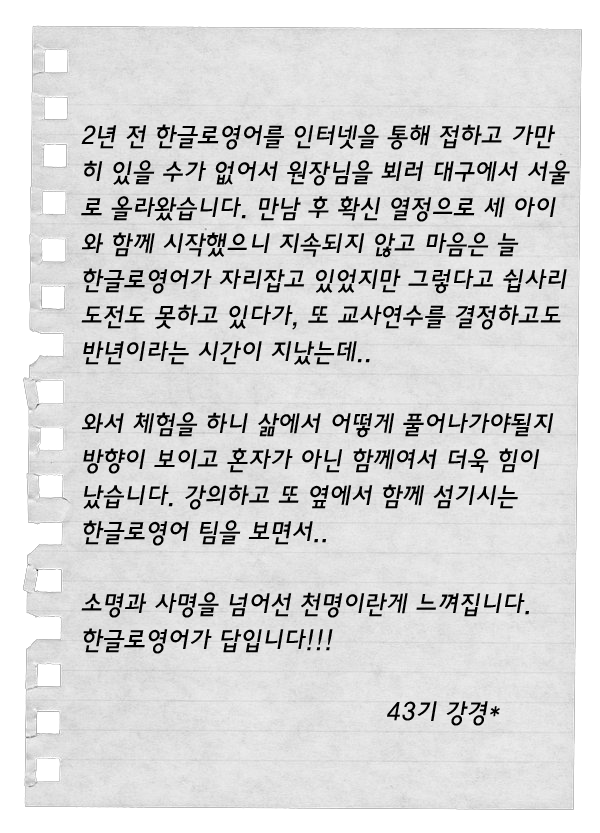 2년 전 한글로영어를 인터넷을 통해 접하고 가만
히 있을 수가 없어서 원장님을 뵈러 대구에서 서울
로 올라왔습니다. 만남 후 확신 열정으로 세 아이
와 함께 시작했으니 지속되지 않고 마음은 늘
한글로영어가 자리잡고 있었지만 그렇다고 쉽사리
도전도 못하고 있다가, 또 교사연수를 결정하고도
반년이라는 시간이 지났는데..
와서 체험을 하니 삶에서 어떻게 풀어나가야될지
방향이 보이고 혼자가 아닌 함께여서 더욱 힘이
났습니다. 강의하고 또 옆에서 함께 섬기시는
한글로영어 팀을 보면서..
소명과 사명을 넘어선 천명이란게 느껴집니다.
한글로영어가 답입니다!!!
43기 강경*